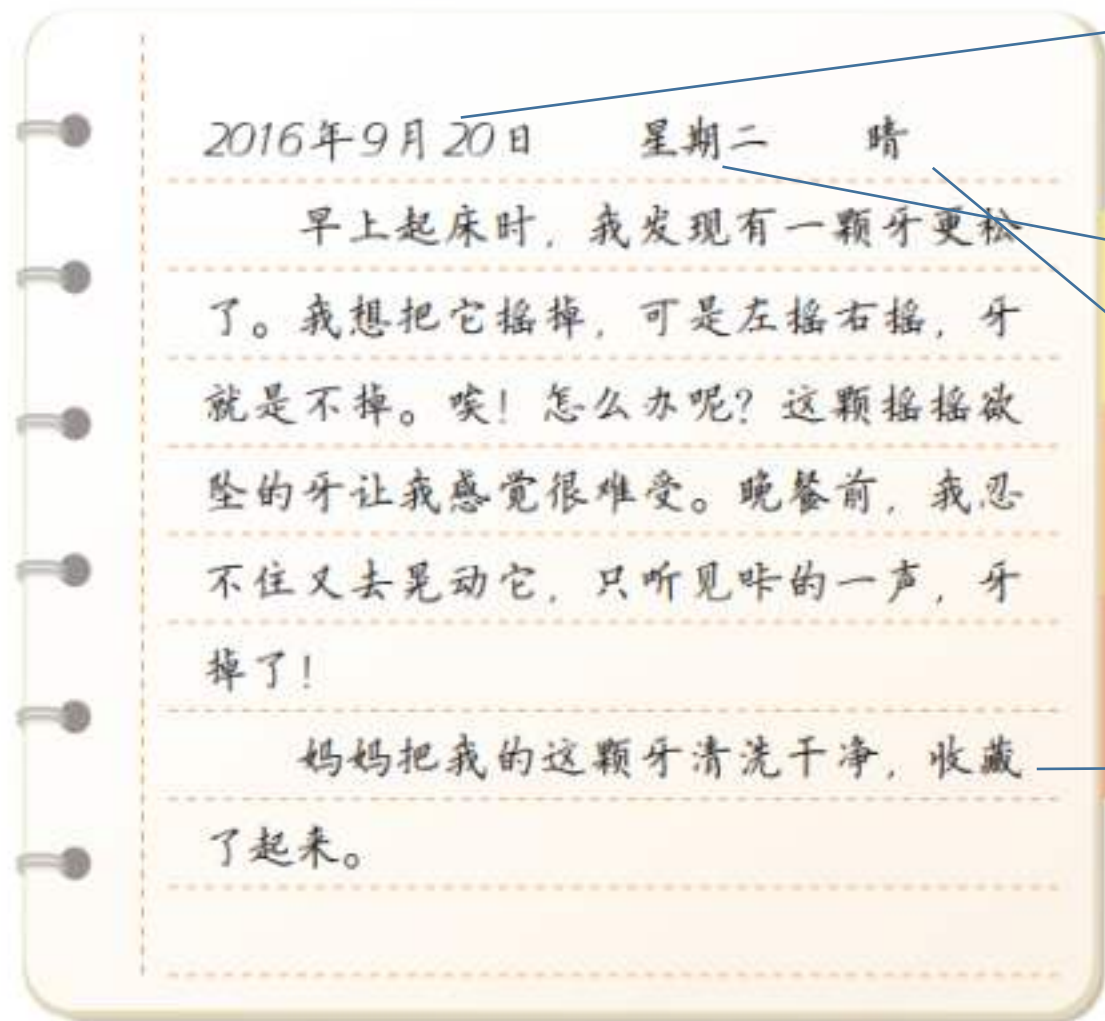 2016年9月20日 星期二 晴
早上起床时，我发现有一颗牙更松
了。我想把它摇掉，可是左摇右摇，牙
就是不掉。唉！怎么办呢？这颗摇摇欲
坠的牙让我感觉很难受。晚餐前，我忍
不住又去晃动它，只听见咔的一声，牙
掉了！
妈妈把我的这颗牙清洗干净，收藏
了起来。